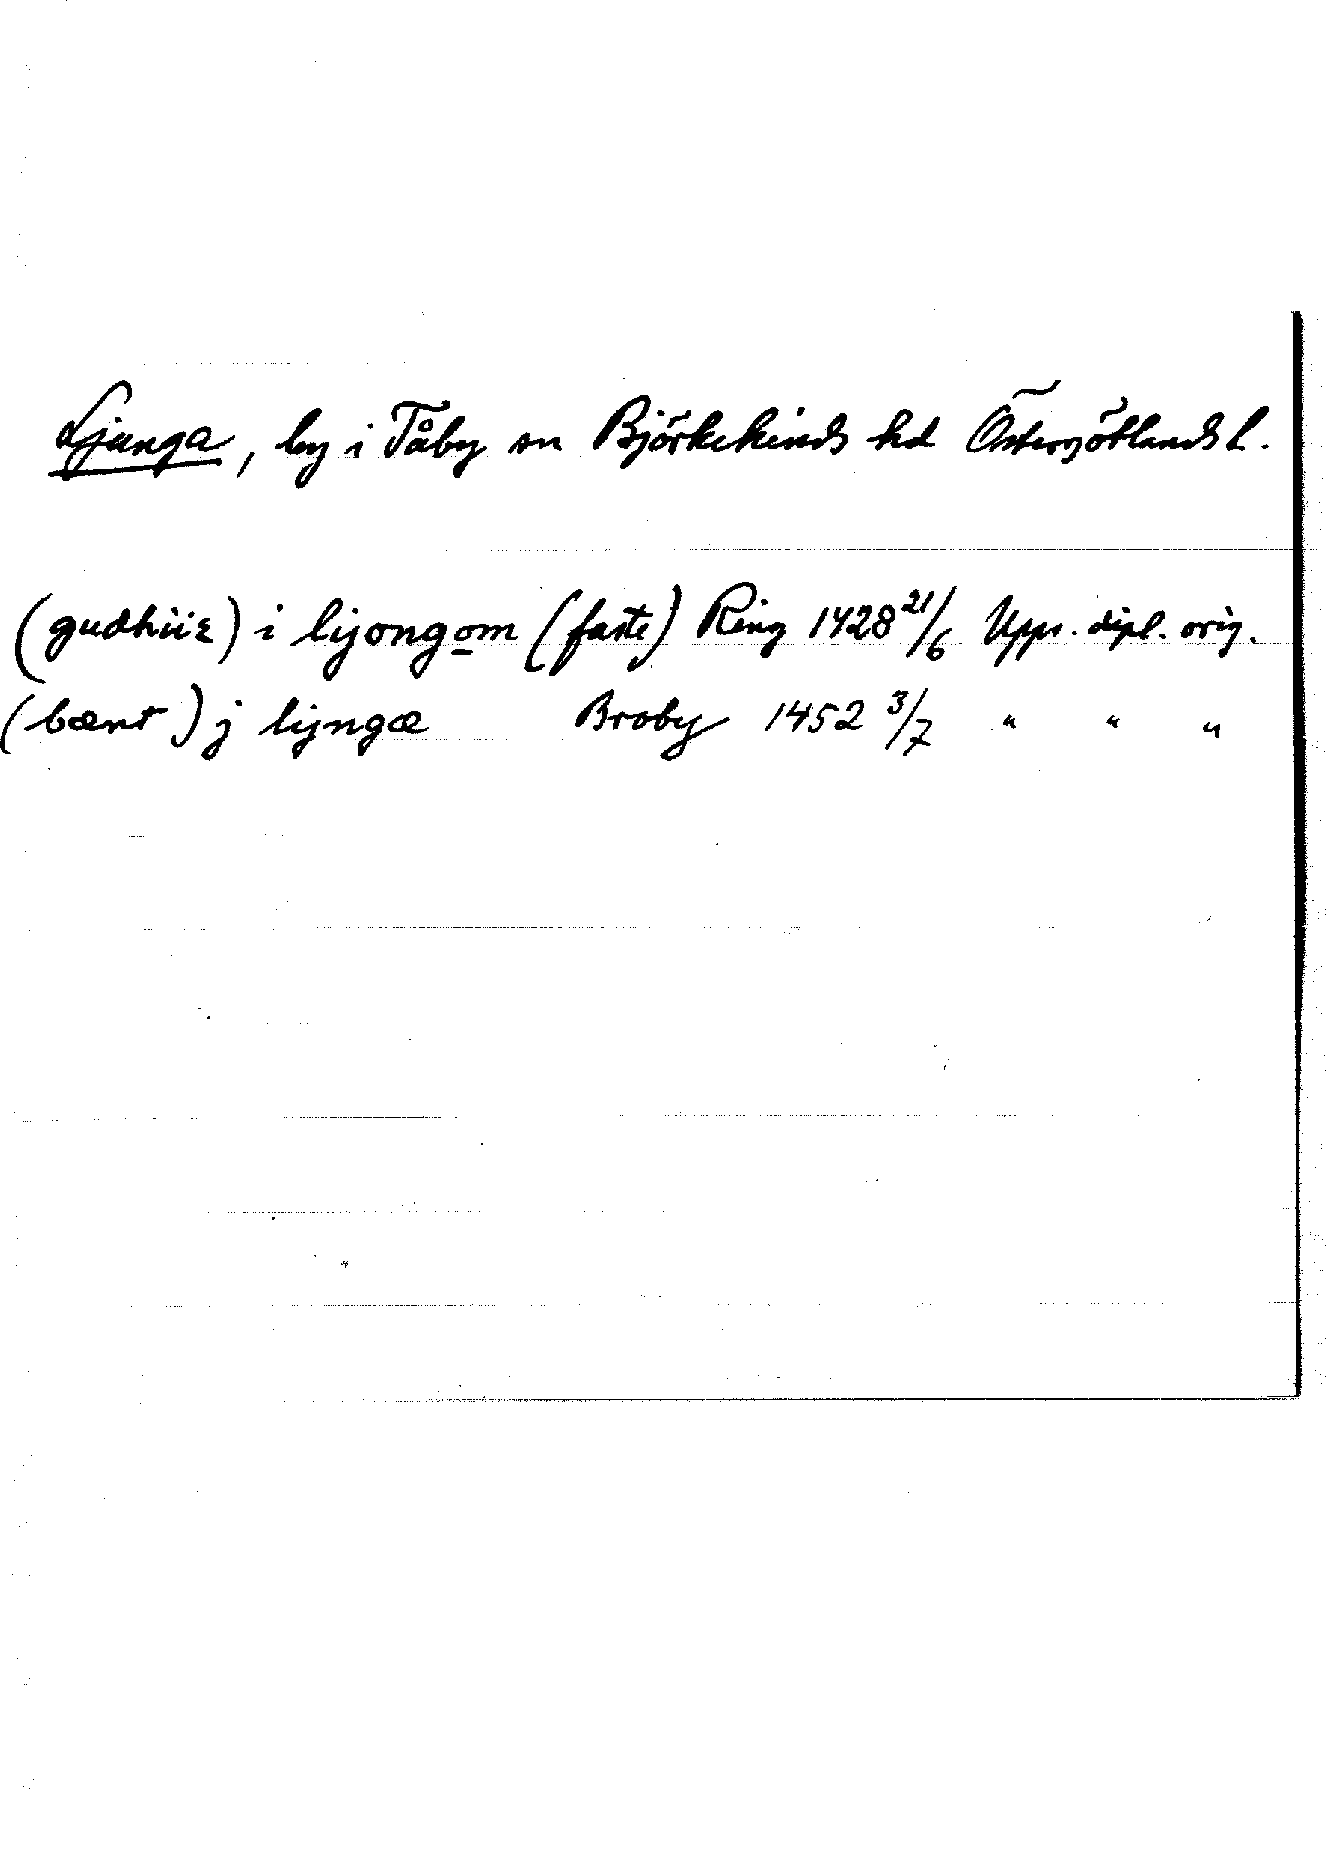 Ljunga, by i Tåby sn Björkekinds hd Östergötlands l.
(gudhiiz) i lijongom (faste) Ring 1428 21/6 Upps. dipl. orig.
(bænt) j lijngæ Broby 1452 3/7 " " "